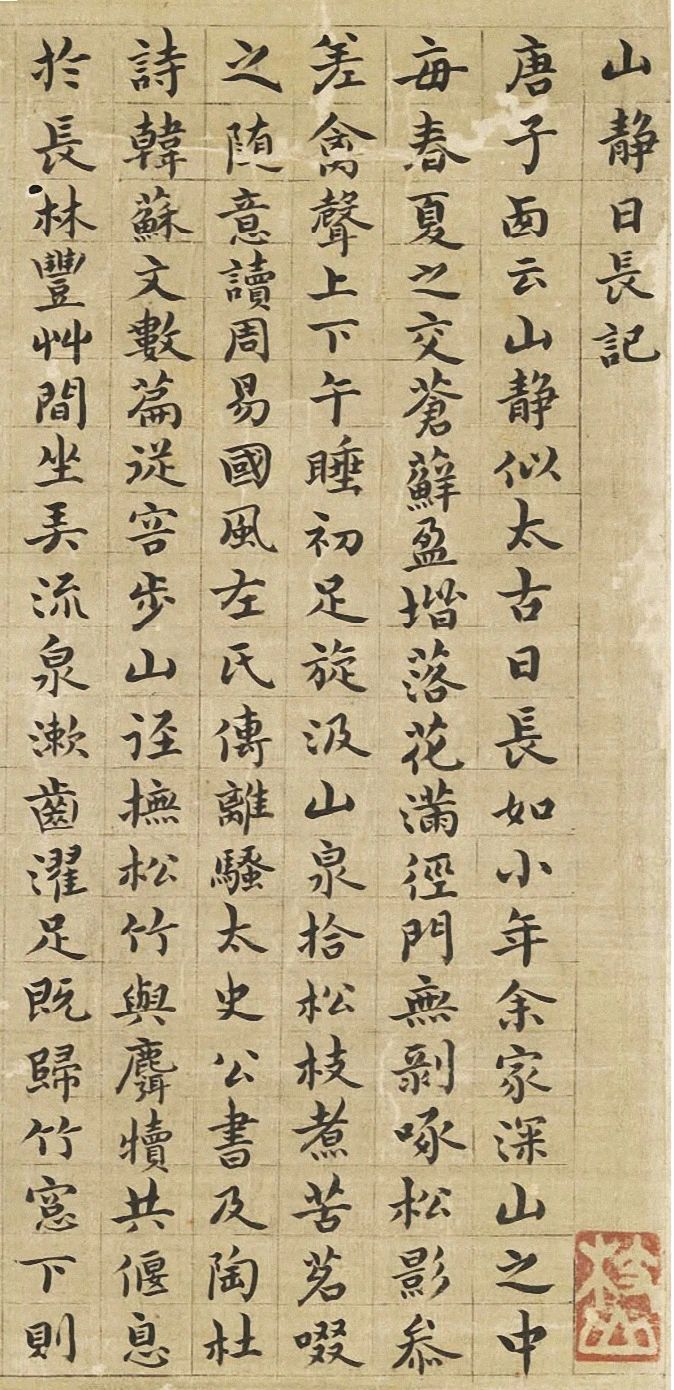 山静日長記
唐子西云山静似太古日長如小年余家深山之中
每春夏之交蒼蘚盈堦落花滿徑門無剥啄松影叅
差禽聲上下午睡初足旋汲山泉拾松枝煮苦茗啜
之随意讀周易國風左氏傳離騷太史公書及陶杜
詩韓蘇文數篇從容步山逕撫松竹與麛犢共偃息
於長林豐艸間坐弄流泉漱齒濯足既歸竹窓下則